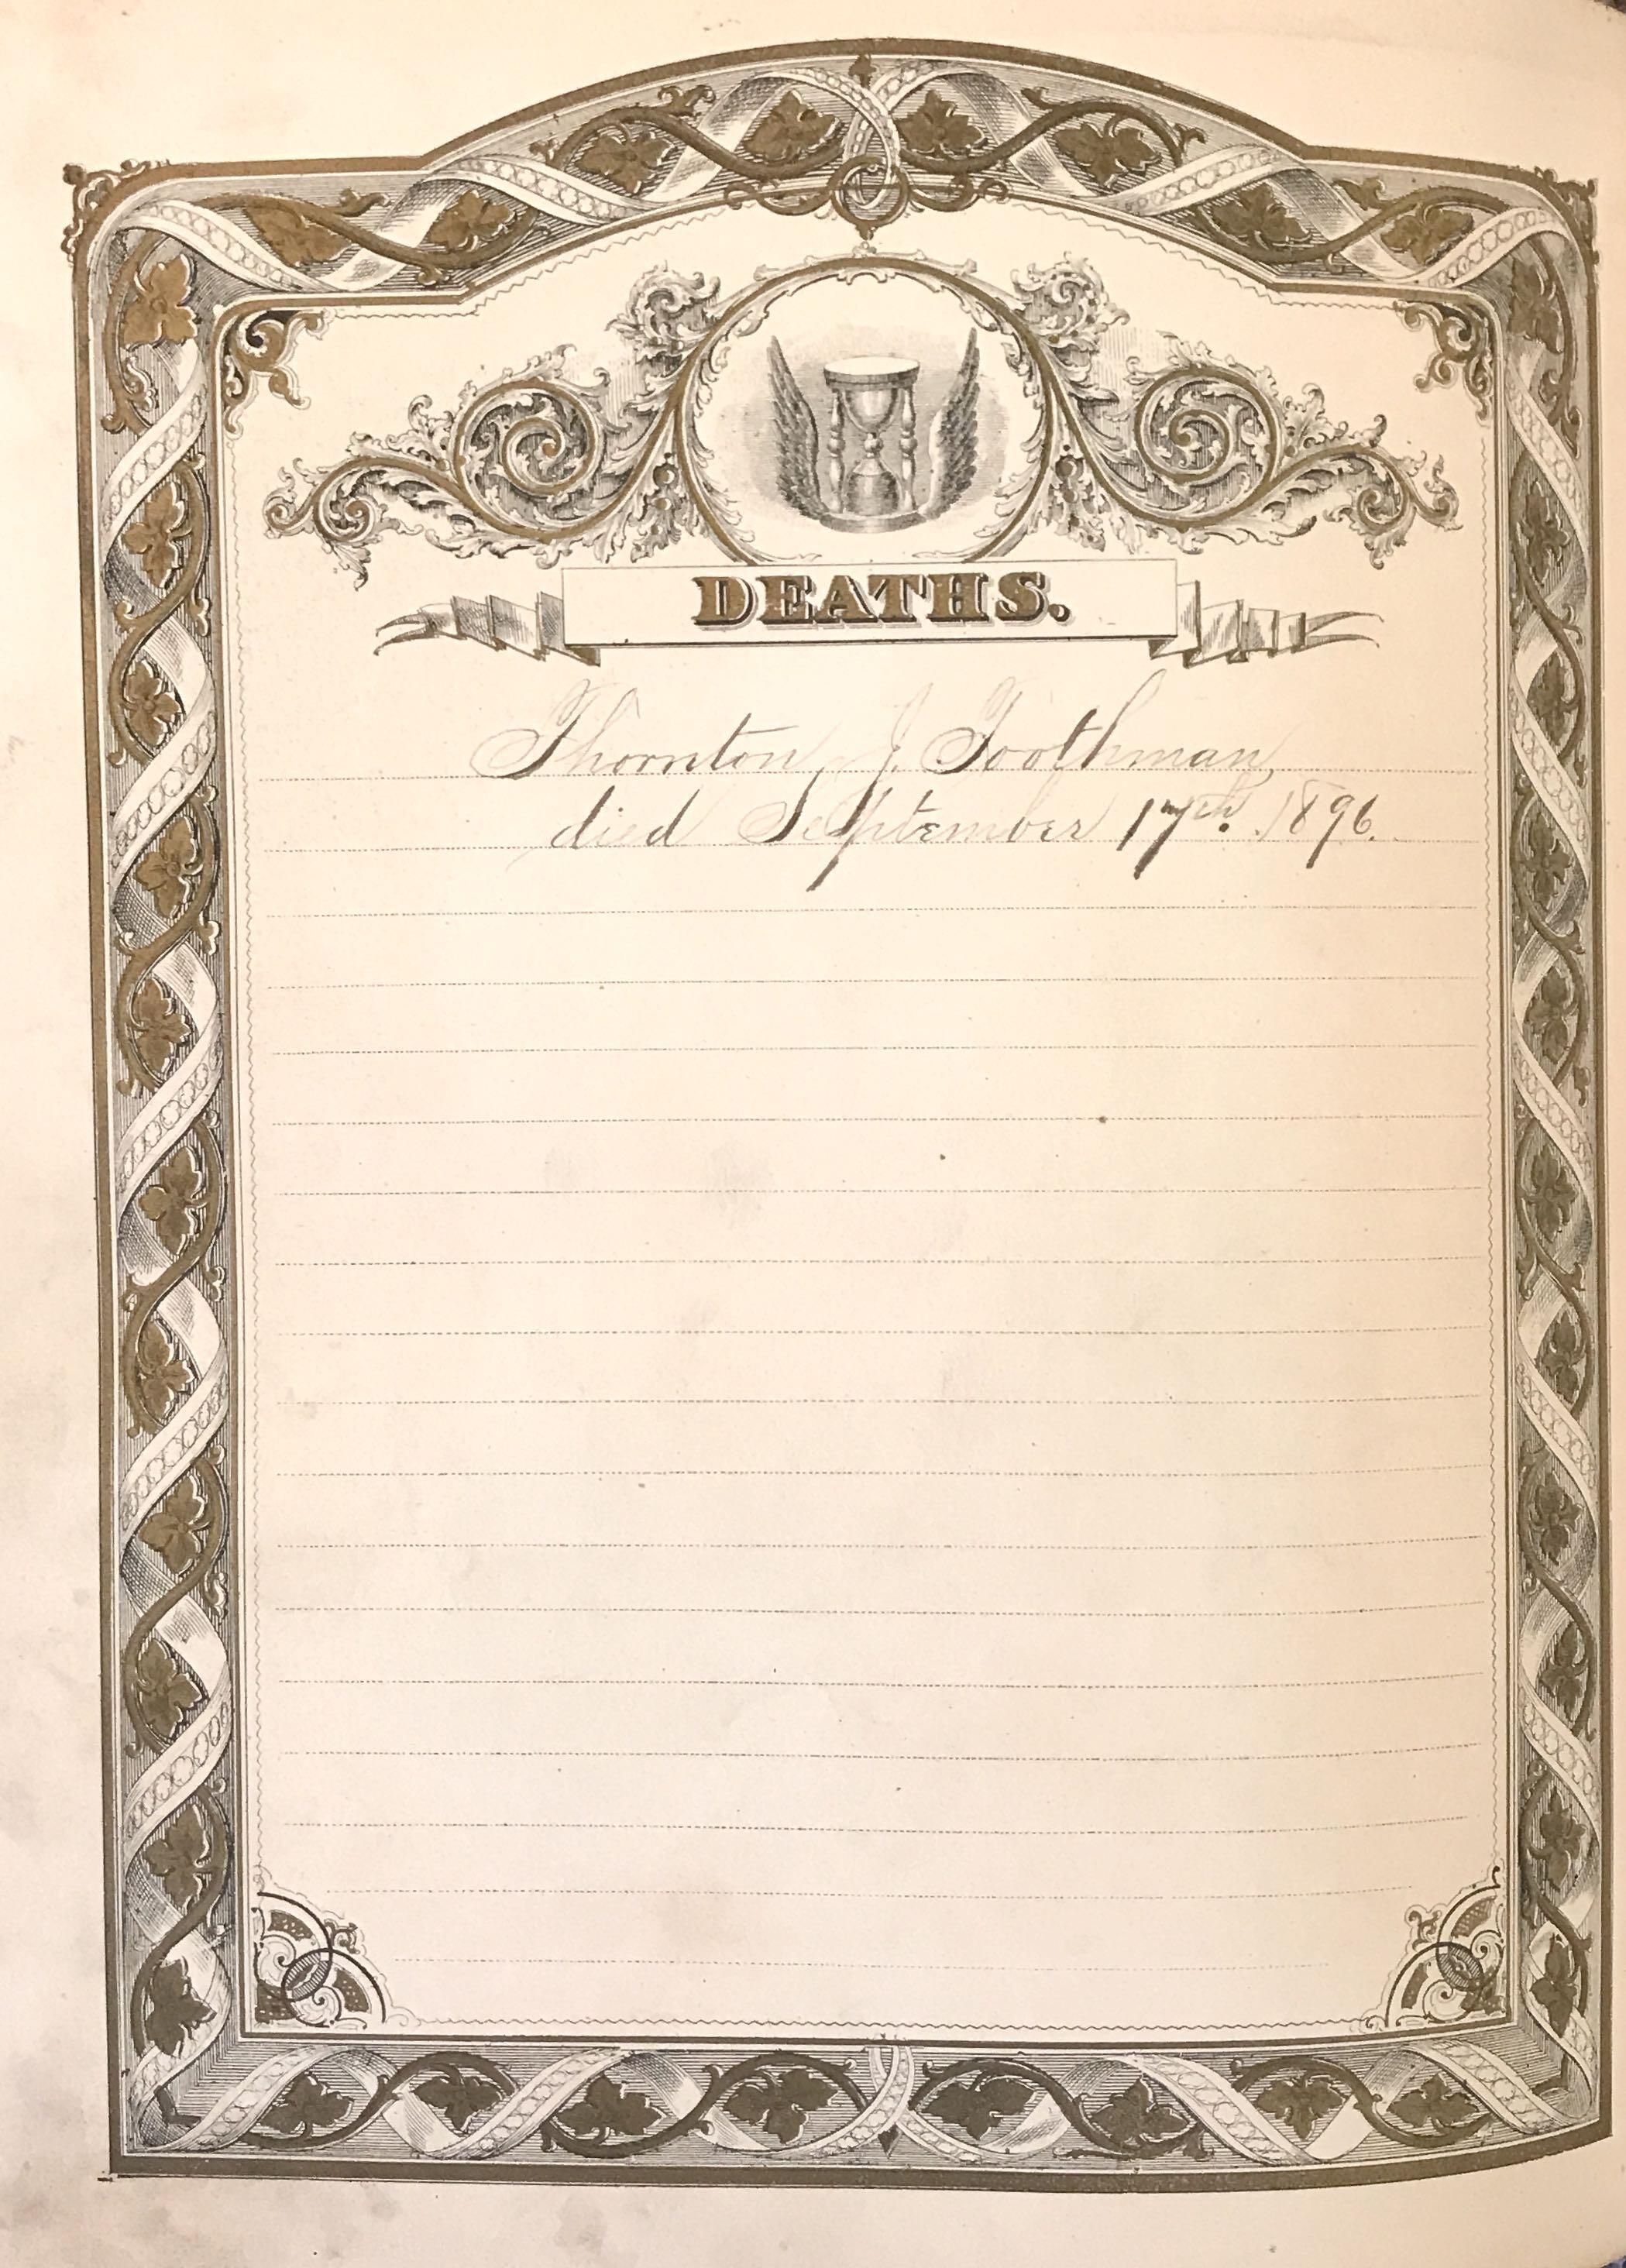 DEATHS.
Thornton J. Toothman
died September 17th. 1896.